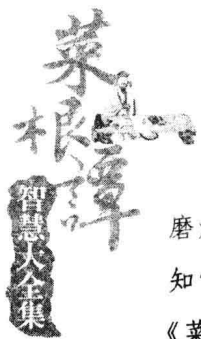 菜根谭
智慧大全集
磨
知
《菜